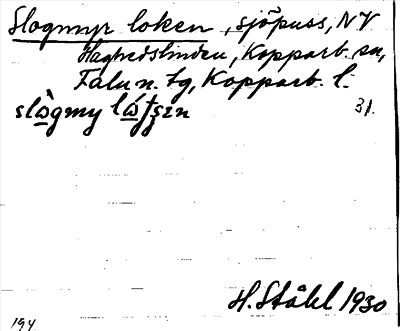 Slogmyr loken, sjöpuss, NV
Haghedslinden, Kopparb. sn,
Falu n. tg, Kopparb. l.
slògmy lótjen
31.
H. Ståhl 1930
194